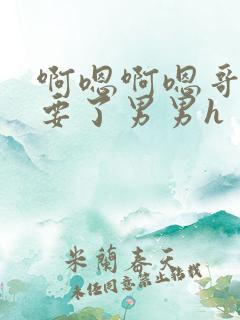 啊嗯啊嗯哥
要了男男h
米蘭春天
未经同意禁止转载